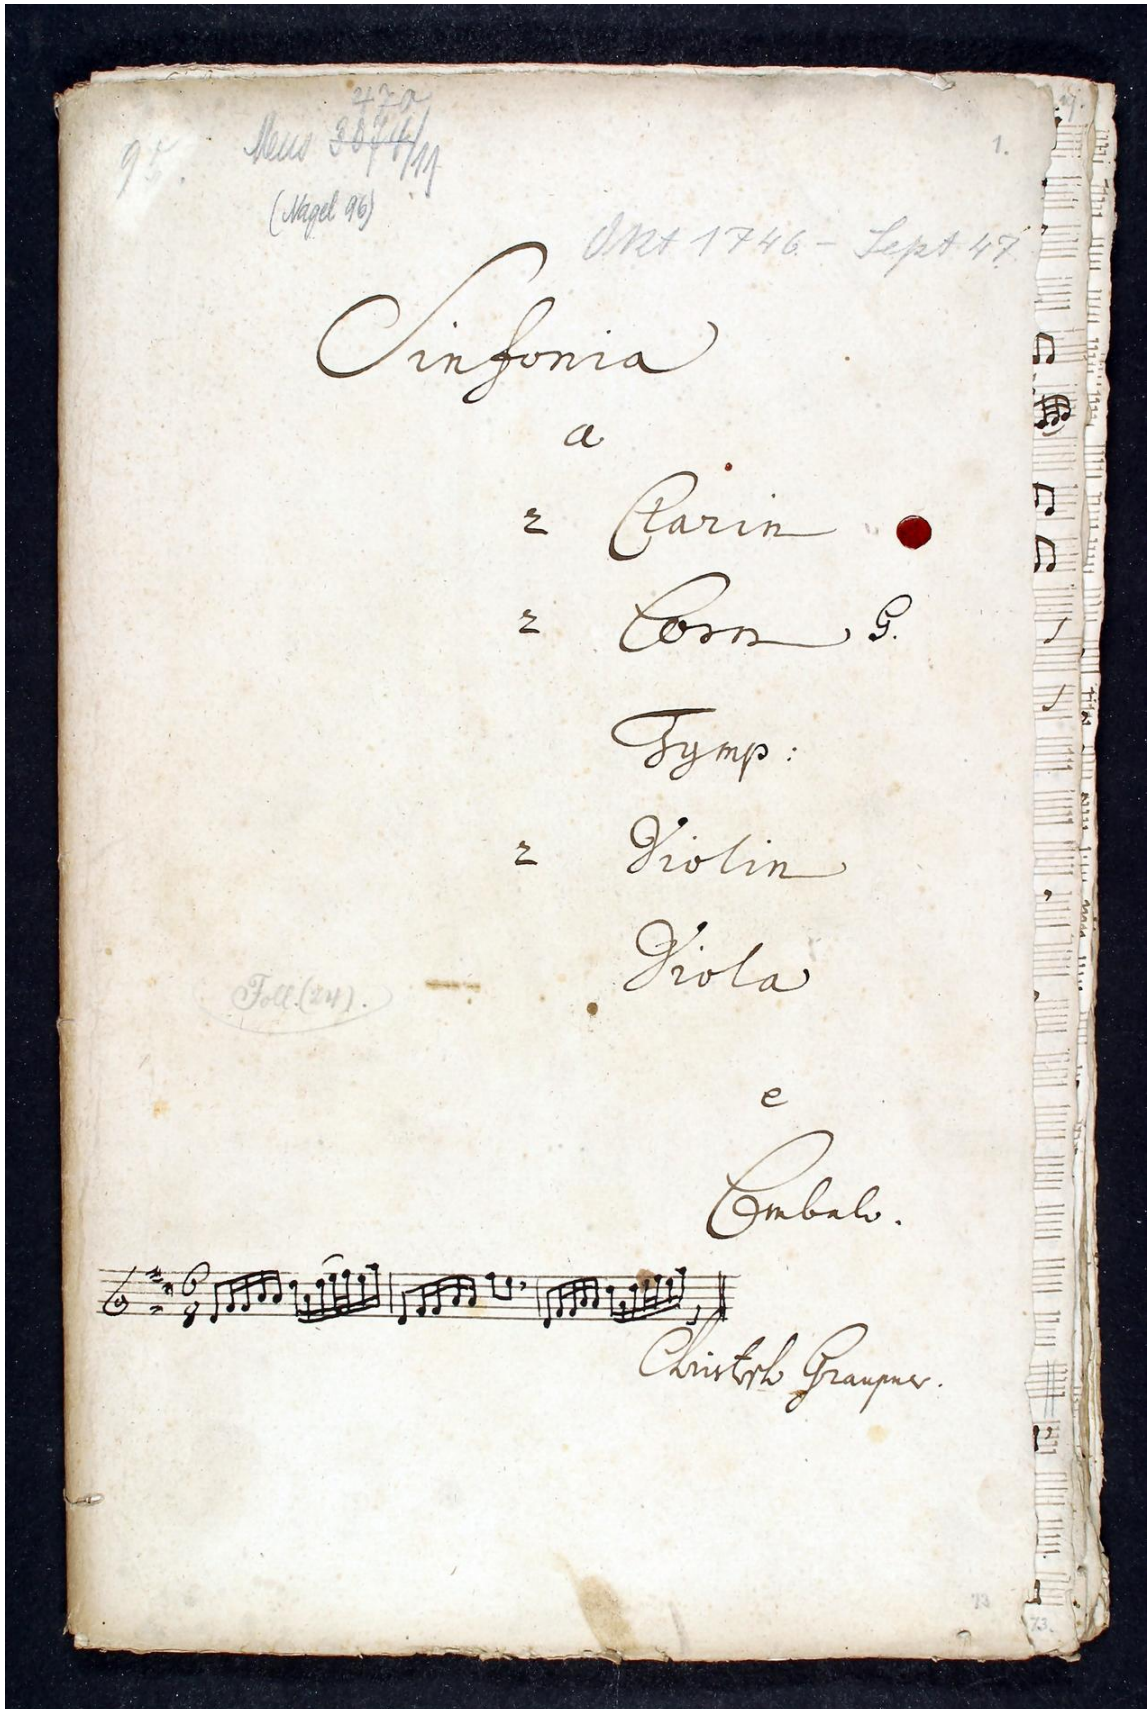 470
Mus 3074/11
95.
1.
(Nagel 96)
Okt 1746 - Sept 47.
Sinfonia
a
2 Clarin
2 Corn G.
Tymp:
2 Violin
Viola
Foll.(24).
e
Cembalo.
6
8
Christoph Graupner.
73
73.